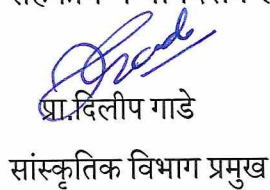 प्रा.दिलीप गाडे
सांस्कृतिक विभाग प्रमुख